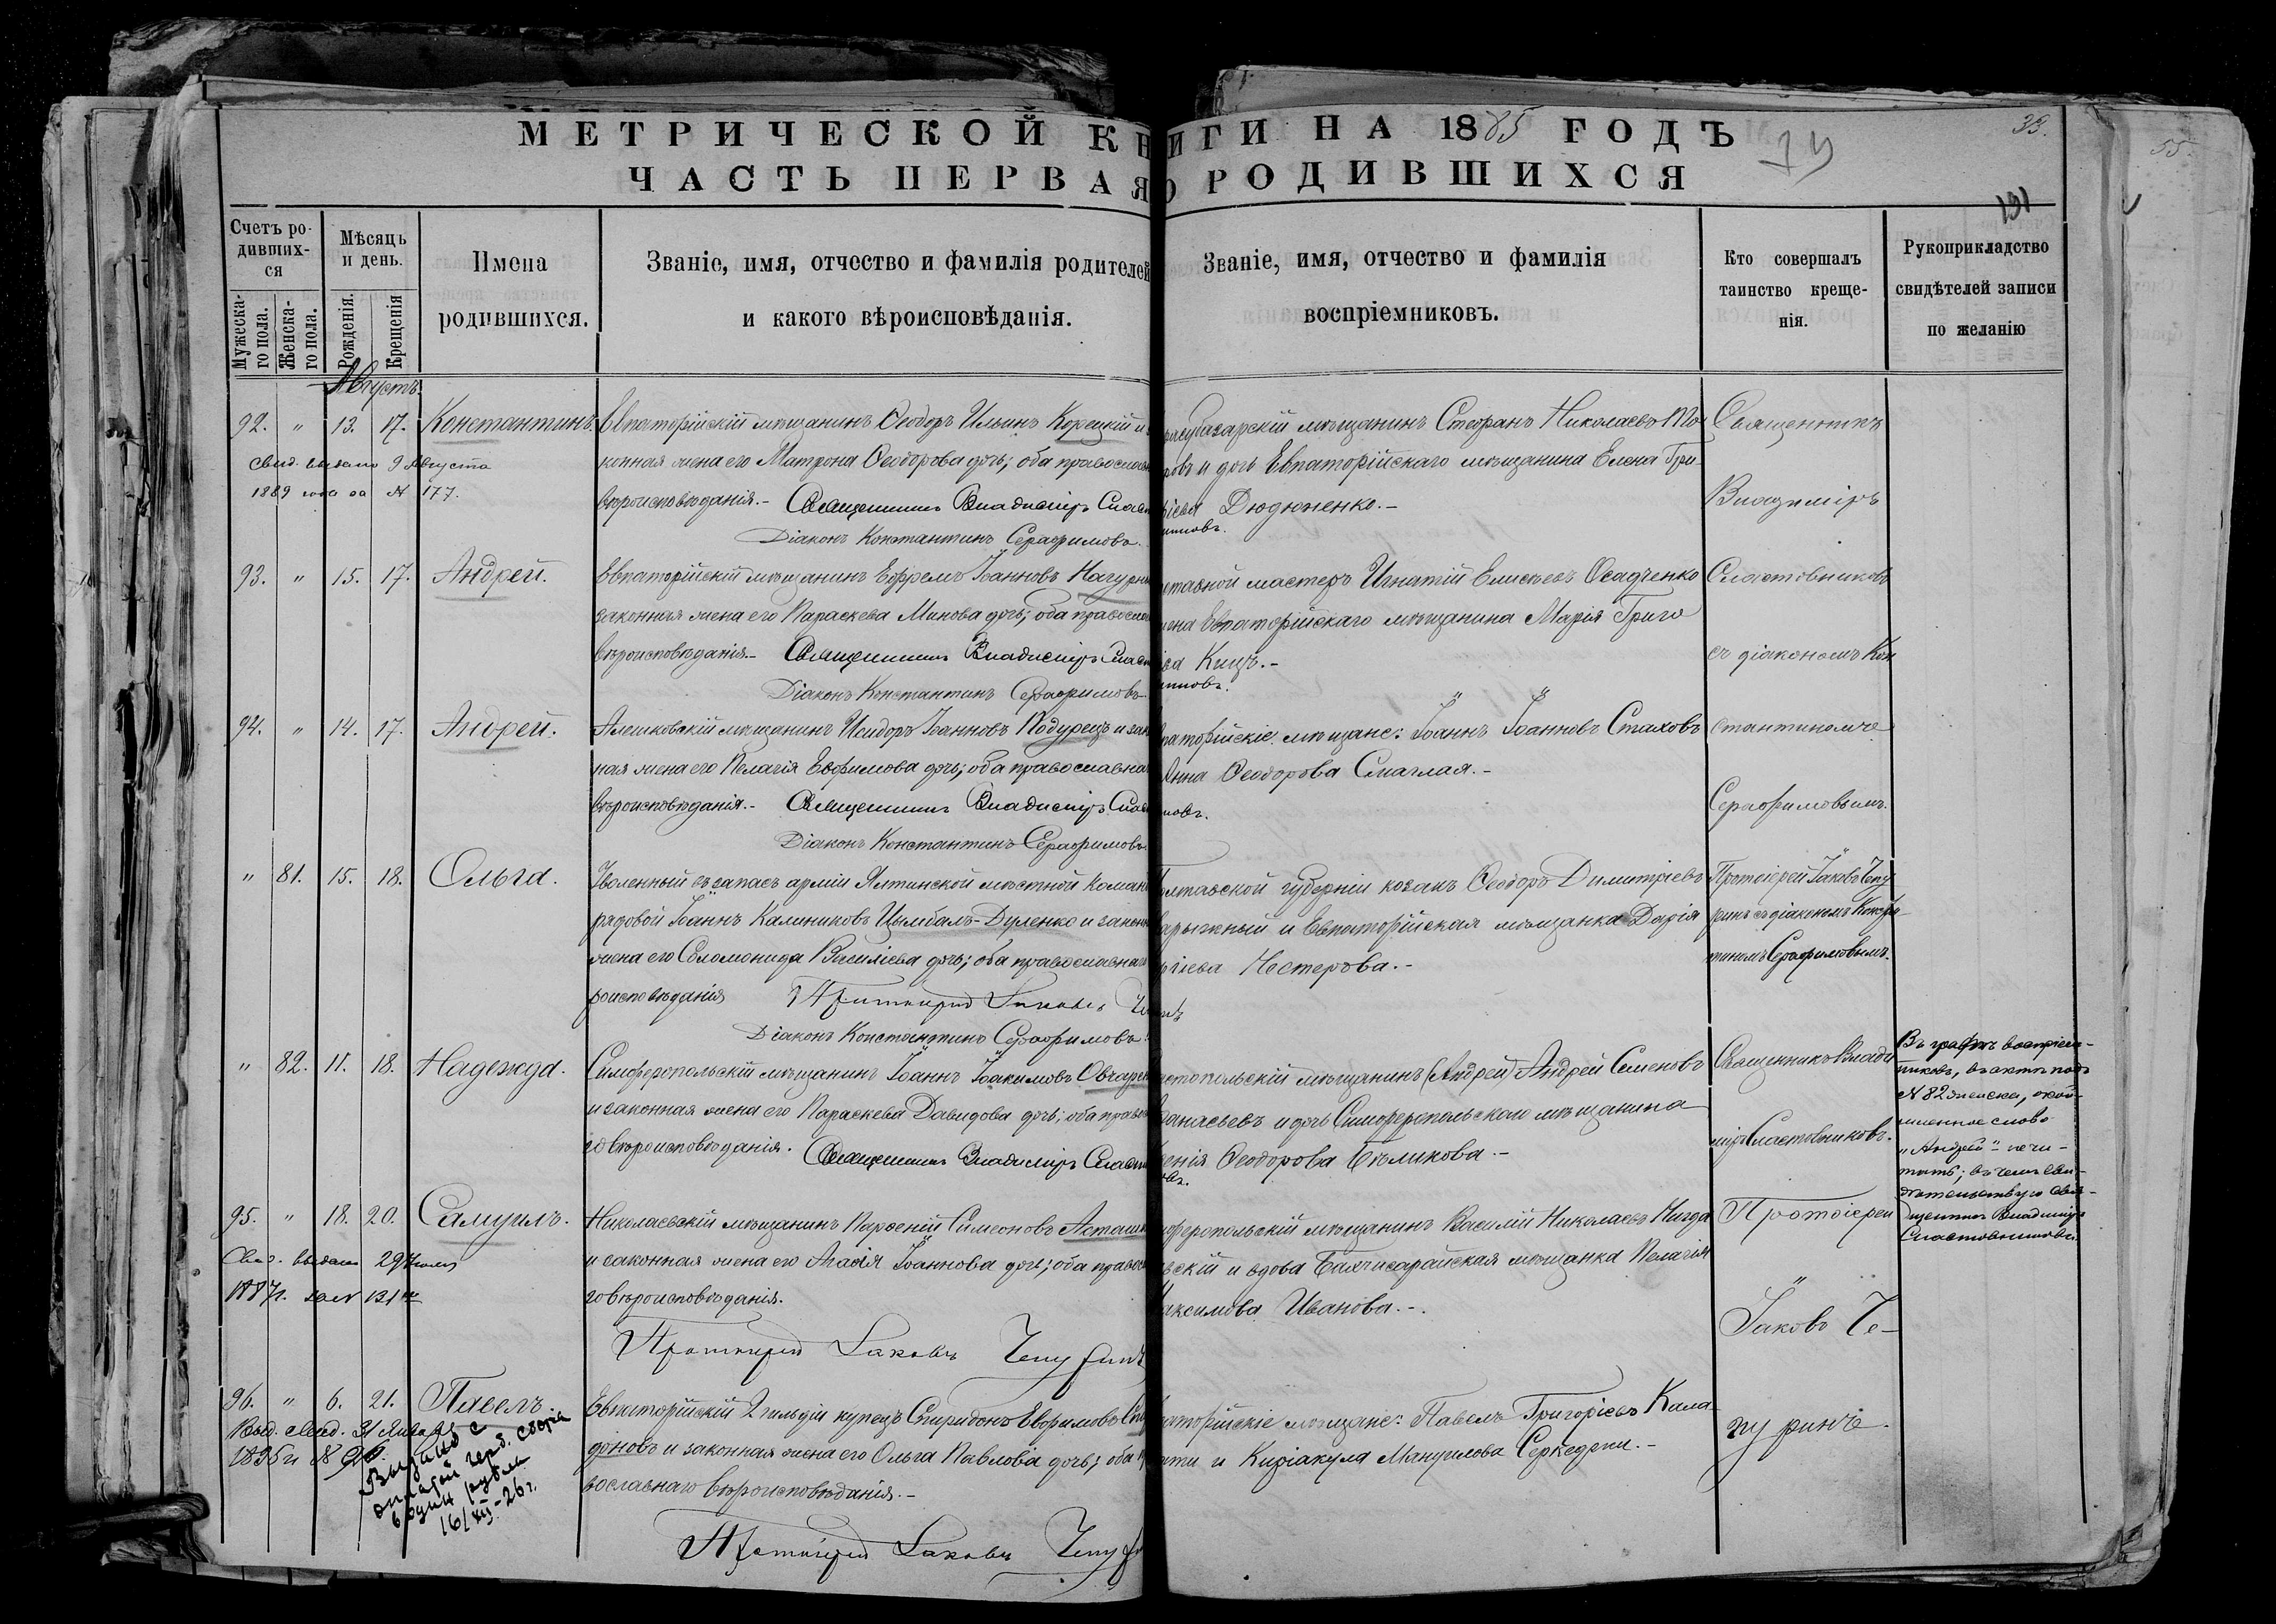 МЕТРИЧЕСКОЙ КНИГИ НА 1885 ГОДЪ
33.
ЧАСТЬ ПЕРВАЯ О РОДИВШИХСЯ
191
Счетъ родивших-ся
Мужеска-го пола.
Женска-го пола.
Мѣсяцъ и день.
Рожденія.
Крещенія
Имена родившихся.
Званіе, имя, отчество и фамилія родителей
и какого вѣроисповѣданія.
Званіе, имя, отчество и фамилія
воспріемниковъ.
Кто совершалъ
таинство креще-
нія.
Рукоприкладство
свидѣтелей записи
по желанію
Августъ.
92. " 13. 17. Константинъ.
Свид. выдано 9 Августа
1889 года за № 177.
Евпаторійскій мѣщанинъ Ѳеодоръ Ильинъ Корецкій и
конная жена его Матрона Ѳеодорова дочь; оба православн
вѣроисповѣданія.- Священникъ Владиміръ
Діаконъ Константинъ Серафимовъ.
мѣщанинъ Стефанъ Николаевъ
и дочь Евпаторійскаго мѣщанина Елена Гри-
Дюдюненко.-
Священникъ
Владиміръ
93. " 15. 17. Андрей.
Евпаторійскій мѣщанинъ Ефремъ Іоанновъ
законная жена его Параскева Минова дочь; оба правосла
вѣроисповѣданія.- Священникъ Владиміръ
Діаконъ Константинъ Серафимовъ.
мастеръ Игнатій Елисѣевъ Осадченко
Евпаторійскаго мѣщанина Марія Григо
Кицъ.-
Сластовниковъ
съ діакономъ Кон
94. " 14. 17. Андрей.
Алешковскій мѣщанинъ Исидоръ Іоанновъ Подурецъ и зак
ная жена его Пелагія Евфимова дочь; оба православна
вѣроисповѣданія.- Священникъ Владиміръ
Діаконъ Константинъ Серафимовъ
мѣщане: Іоаннъ Іоанновъ Стаховъ
Анна Ѳеодорова Смаглая.-
стантиномъ
Серафимовымъ.
" 81. 15. 18. Ольга.
Уволенный въ запасъ арміи Ялтинской мѣстной коман
рядовой Іоаннъ Калиниковъ Цымбалъ-Дуленко и законн
жена его Соломонида Василіева дочь; оба православнаго
роисповѣданія Протоіерей Іаковъ
Діаконъ Константинъ Серафимовъ.
губерніи козакъ Ѳеодоръ Димитріевъ
и Евпаторійская мѣщанка Дарія
Нестерова.-
Протоіерей Іаковъ Чепу
ринъ съ діакономъ Конста-
тиномъ Серафимовымъ.
" 82. 11. 18. Надежда.
Симферопольскій мѣщанинъ Іоаннъ Іоакимовъ
и законная жена его Параскева Давидова дочь; оба право
го вѣроисповѣданія. Священникъ Владиміръ
мѣщанинъ (Андрей) Андрей Семеновъ
и дочь Симферопольскаго мѣщанина
Ѳеодорова Бѣликова.-
Священникъ Влади
міръ Сластовниковъ.
Въ графѣ воспріем-
никовъ, въ актѣ подъ
№ 82 женска,
слово
"Андрей" не чи-
тать; въ чемъ сви-
дѣтельствую Свя-
щенникъ Владиміръ
Сластовниковъ.
95. " 18. 20. Самуилъ.
Свид. выдано 29 Іюля
1887г. за № 131
Николаевскій мѣщанинъ Парѳеній Симеоновъ
и законная жена его Агаѳія Іоаннова дочь; оба правос
го вѣроисповѣданія.
Протоіерей Іаковъ Чепуринъ
мѣщанинъ Василій Николаевъ
и вдова Бахчисарайская мѣщанка Пелагія
Иванова.-
Протоіерей
Іаковъ Че-
96. " 6. 21. Павелъ
Выд. свид. 31 Января
Выдано с
оплатой герб. сбора
в один рубль
16/XII-26 г.
Евпаторійскій 2 гильдіи купецъ Спиридонъ Евфимовъ Спи
доновъ и законная жена его Ольга Павлова дочь; оба пр
вославнаго вѣроисповѣданія.-
Протоіерей Іаковъ
мѣщане: Павелъ Григоріевъ Кала
и Киріакула Мануилова Серкеджи.-
пуринъ.